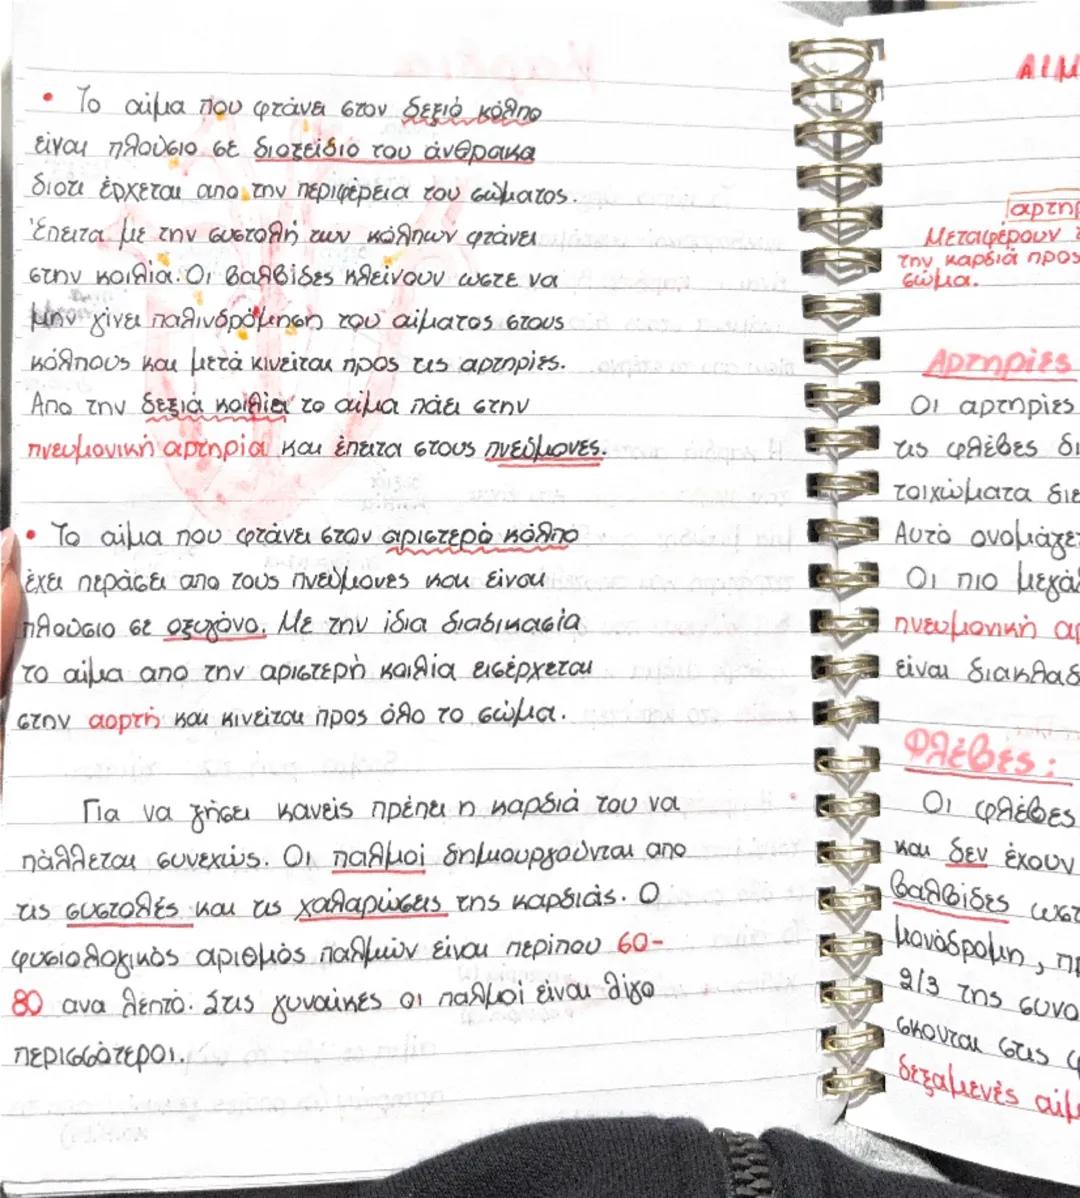 • Το αίμα που φτάνει στον δεξιό κόλπο
είναι πλούσιο σε διοξείδιο του άνθρακα
διοτι έρχεται απο την περιφέρεια του σώματος.
Έπειτα με την συστολή των κόλπων φτάνει
στην κοιλία. Οι βαλβίδες κλείνουν ωστε να
μην γίνει παλινδρόμηση του αίματος στους
κόλπους και μετά κινείται προς τις αρτηρίες.
Απο την δεξιά κοιλία το αίμα πάει στην
πνευμονική αρτηρία και έπειτα στους πνεύμονες.
• Το αίμα που φτάνει στον αριστερό κόλπο
έχει περάσει απο τους πνεύμονες και είναι
πλούσιο σε οξυγόνο. Με την ίδια διαδικασία
το αίμα απο την αριστερή κοιλία εισέρχεται
στην αορτή και κινείται προς όλο το σώμα.
Για να ζήσει κανείς πρέπει η καρδιά του να
πάλλεται συνεχώς. Οι παλμοί δημιουργούνται απο
τις συστολές και τις χαλαρώσεις της καρδιάς. Ο
φυσιολογικός αριθμός παλμών είναι περίπου 60-
80 ανα λεπτό. Στις γυναίκες οι παλμοί είναι λίγο
περισσότεροι.
ΑΙΜ
αρτηρ
Μεταφέρουν τ
την καρδιά προς
σώμα.
Αρτηρίες
Οι αρτηρίες
τις φλέβες δι
τοιχώματα διε
Αυτό ονομάζετ
Οι πιο μεγά
πνευμονική αρ
είναι διακλαδ
Φλέβες:
Οι φλέβες
και δεν έχουν
βαλβίδες ωστ
μονόδρομη, πρ
2/3 της συνο
σκονται στις φ
δεξαμενές αίμ